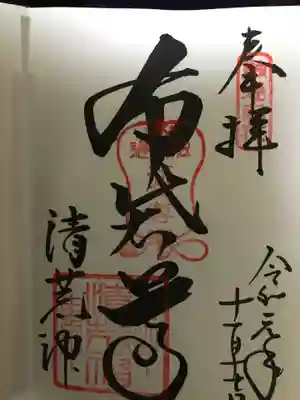 奉拝
令和元年
十一月十七日
布袋尊
清荒神